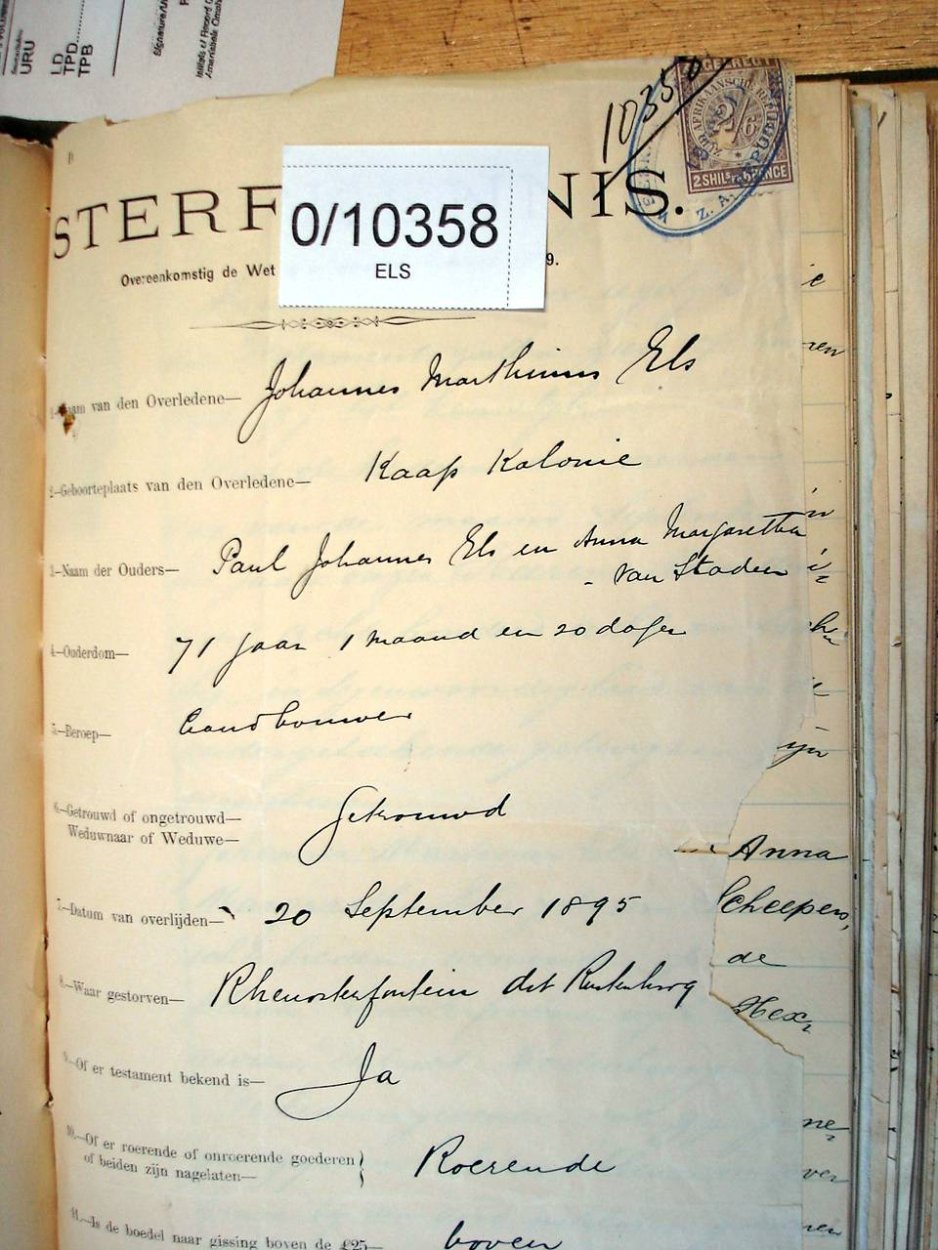 URU
LD
TPD
TPB
10358
2 SHILS 6 PENCE
Z. A. REPUBL
STERF NIS.
0/10358
ELS
Overeenkomstig de Wet 9.
1.—Naam van den Overledene— Johannes Marthinus Els
2.—Geboorteplaats van den Overledene— Kaap Kolonie
3.—Naam der Ouders— Paul Johannes Els en Anna Margaretha
van Staden
4.—Ouderdom— 71 jaar 1 maand en 20 dagen
5.—Beroep— Landbouwer
6.—Getrouwd of ongetrouwd—
Weduwnaar of Weduwe— Getrouwd
Anna
7.—Datum van overlijden— 20 September 1895
Scheepers,
de
8.—Waar gestorven— Rhenosterfontein dst Rustenburg
Hex
9.—Of er testament bekend is— Ja
10.—Of er roerende of onroerende goederen
of beiden zijn nagelaten— Roerende
11.—Is de boedel naar gissing boven de £25— boven